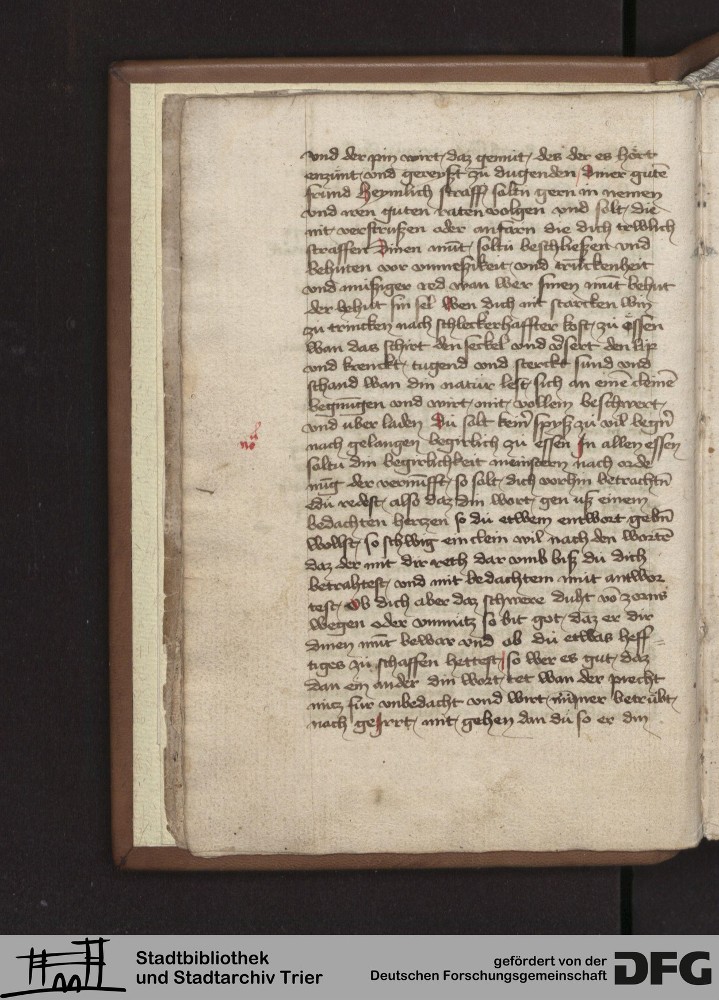 vnd der pin wirt daz gemüt des der es hört
enzünt vnd gereyßt zü dugenden Diner güte
fründ Heymlich straff soltu gern in nemen
vnd iren guten raten volgen vnd solt die
nit verstrußen oder anfarn die dich trwlich
straffen Dinen müt soltu beschließen vnd
behüten vor vnmeßikeit vnd trückenheit
vnd müßiger red wan wer sinen müt behüt
der behüt sin sel Wen dich nit starcken win
zü trincken nach schleckerhaffter kost zü essen
wan das schirt den seckel vnd den lip
vnd krenckt tugend vnd sterckt sund vnd
schand wan din natur lest sich an eine cleine
begnügen vnd wirt mit vollem beschwert
vnd uber laden Du solt kein spyß zü vil begern
nach gelangen begirlich zü essen In allen essen
soltu din begirlichkeit meinstern nach orde
nüg der vernufft so solt dich vorhin betrachtn
edu redest also daz din wort gen uß einem
bedachten hertzen so du etwem entwort gebn
wollst so schwig ein clein wil nach den worte
daz der mit dir reth dar vmb biß du dich
betrahtest vnd mit bedachtem müt antwor
test Ob dich aber daz schwere duht vo zorns
wegen oder vnmütz so bit got daz er dir
dinen müt bewar vnd ob du etwas heff
tiges zü schaffen hettest so wer es gut daz
dan ein ander din wort tet wan der
mitz für vnbedacht vnd wirt nümer betrübt
nach geIrrt mit gehen dan du so er din
no
Stadtbibliothek
und Stadtarchiv Trier
gefördert von der
Deutschen Forschungsgemeinschaft
DFG